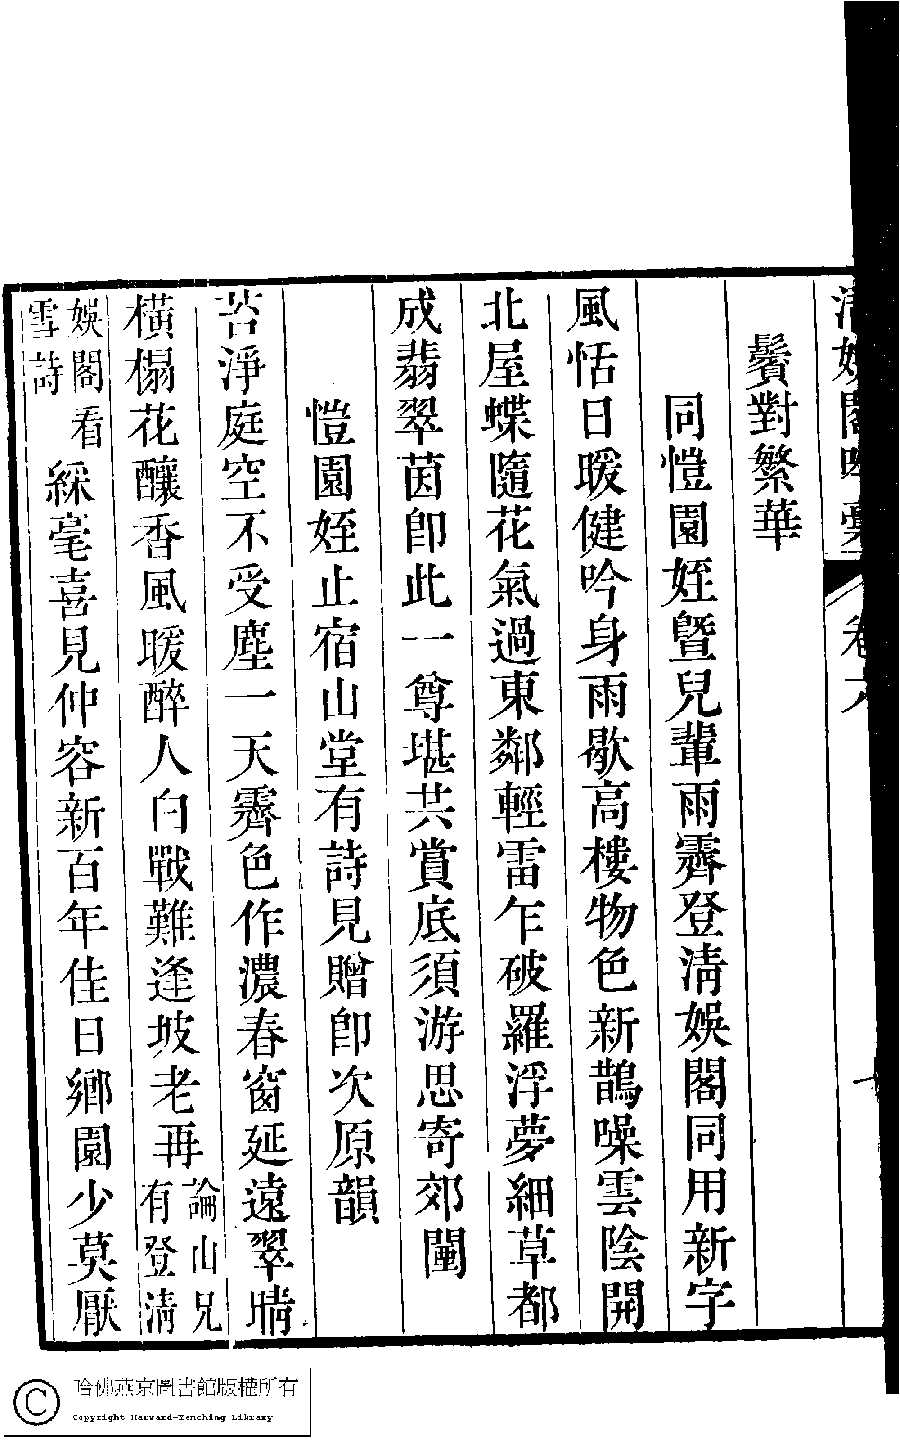 清娛閣吟稾 卷六
鬢對繁華
同愷園姪曁兒輩雨霽登清娛閣同用新字
風恬日暖健吟身雨歇高樓物色新鵲噪雲陰開
北屋蝶隨花氣過東鄰輕雷乍破羅浮夢細草都
成翡翠茵卽此一尊堪共賞底須游思寄郊闉
愷園姪止宿山堂有詩見贈卽次原韻
苔淨庭空不受塵一天霽色作濃春窗延遠翠晴
橫榻花釀香風暖醉人白戰難逢坡老再論山兄有登清
娛閣看雪詩綵毫喜見仲容新百年佳日鄉園少莫厭
哈佛燕京圖書館版權所有
Copyright Harvard-Yenching Library